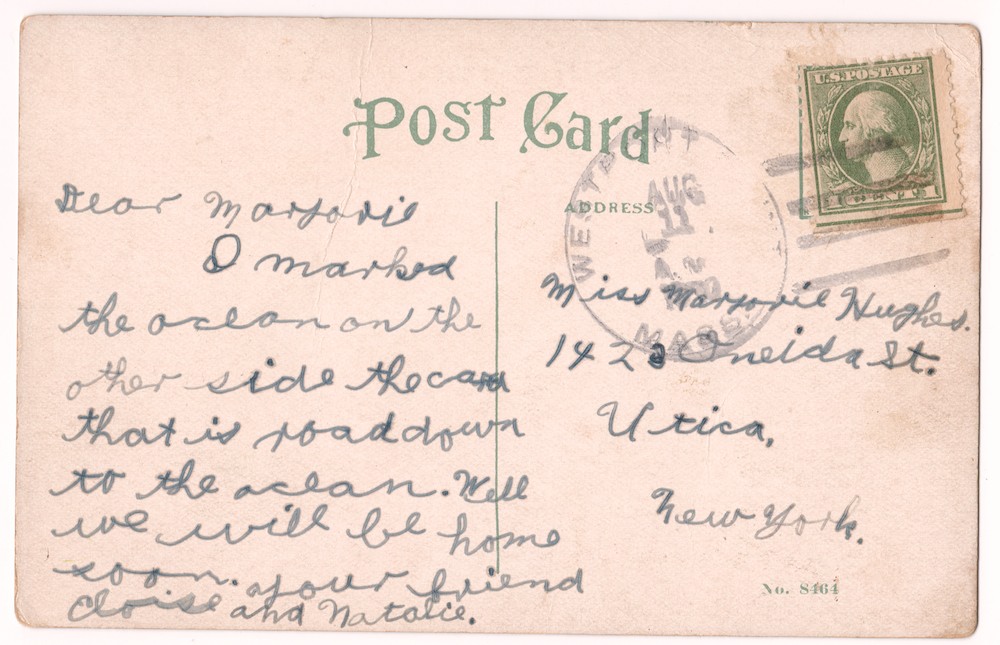 U.S. POSTAGE
1 CENT 1
POST CARD
ADDRESS
WESTPORT
AUG
11
MASS.
Dear Marjorie
I marked
the ocean on the
other side the card
that is road down
to the ocean. Well
we will be home
soon. your friend
and Natalie.
Miss Marjorie Hughes.
1423 Oneida St.
Utica,
New York.
No. 8464